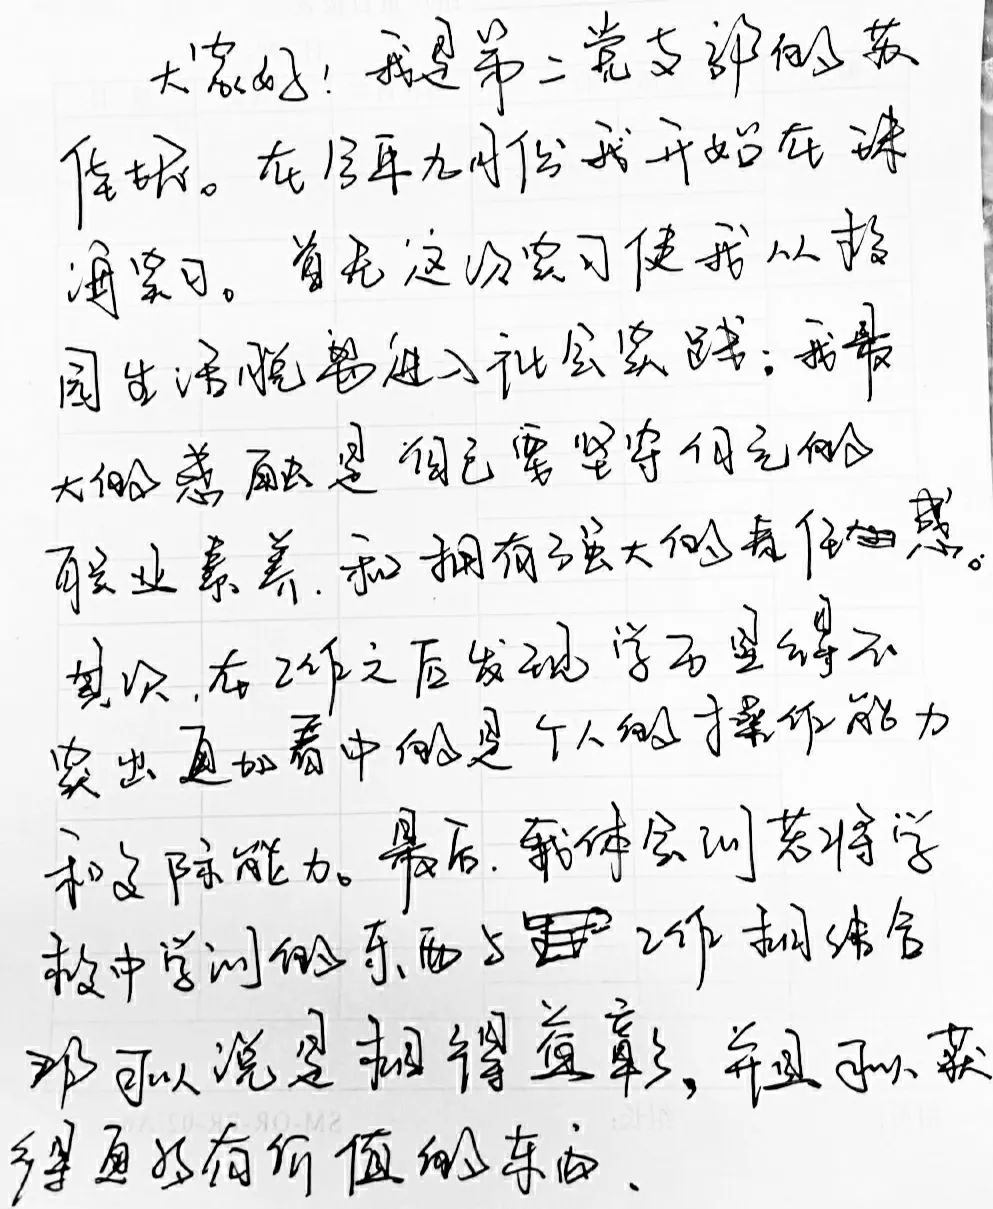 大家好！我是第二党支部的苏
佳琚。在今年九月份我开始在珠
海实习。首先这次实习使我从校
园生活脱离进入社会实践；我最
大的感触是自己要坚守自己的
职业素养.和拥有强大的责任感。
其次.在工作之后发现学历显得不
突出更加看中的是个人的操作能力
和交际能力。最后.我体会到若将学
校中学到的东西与工作相结合
那可以说是相得益彰,并且可以获
得更好有价值的东西.